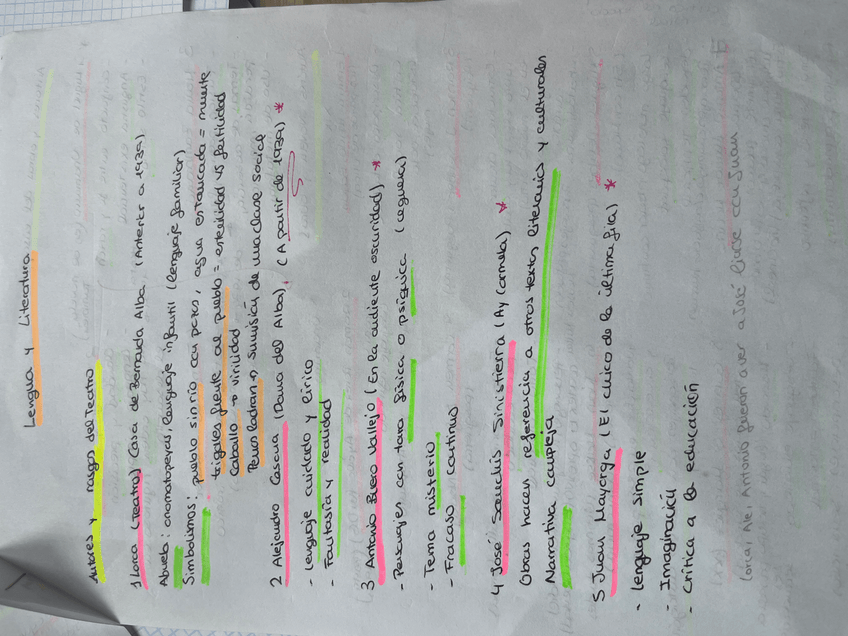 Lengua y Literatura
Autores y rasgos del Teatro
1 Lorca (Teatro) Casa de Bernarda Alba (Anterior a 1939)
Abuela: onomatopeyas, lenguaje infantil (lenguaje familiar)
Simbolismos: pueblo sin río con pozos, agua estancada = muerte
trigales frente al pueblo = esterilidad vs fertilidad
Caballo → virilidad
Perros ladran → sumisión de una clase social
2 Alejandro Casona (Dama del Alba), (A partir de 1939) *
- Lenguaje cuidado y lírico
- Fantasía y realidad
3 Antonio Buero Vallejo (En la ardiente oscuridad) *
- Personajes con tara física o psíquica (ceguera)
- Tema misterio
- Fracaso continuo
4 José Sanchis Sinistierra (Ay Carmela) *
Obras hacen referencia a otros textos literarios y culturales
Narrativa compleja
5 Juan Mayorga (El chico de la última fila) *
- Lenguaje simple
- Imaginación
- Crítica a la educación
Lorca, Ale, Antonio fueron a ver a José liarse con Juan